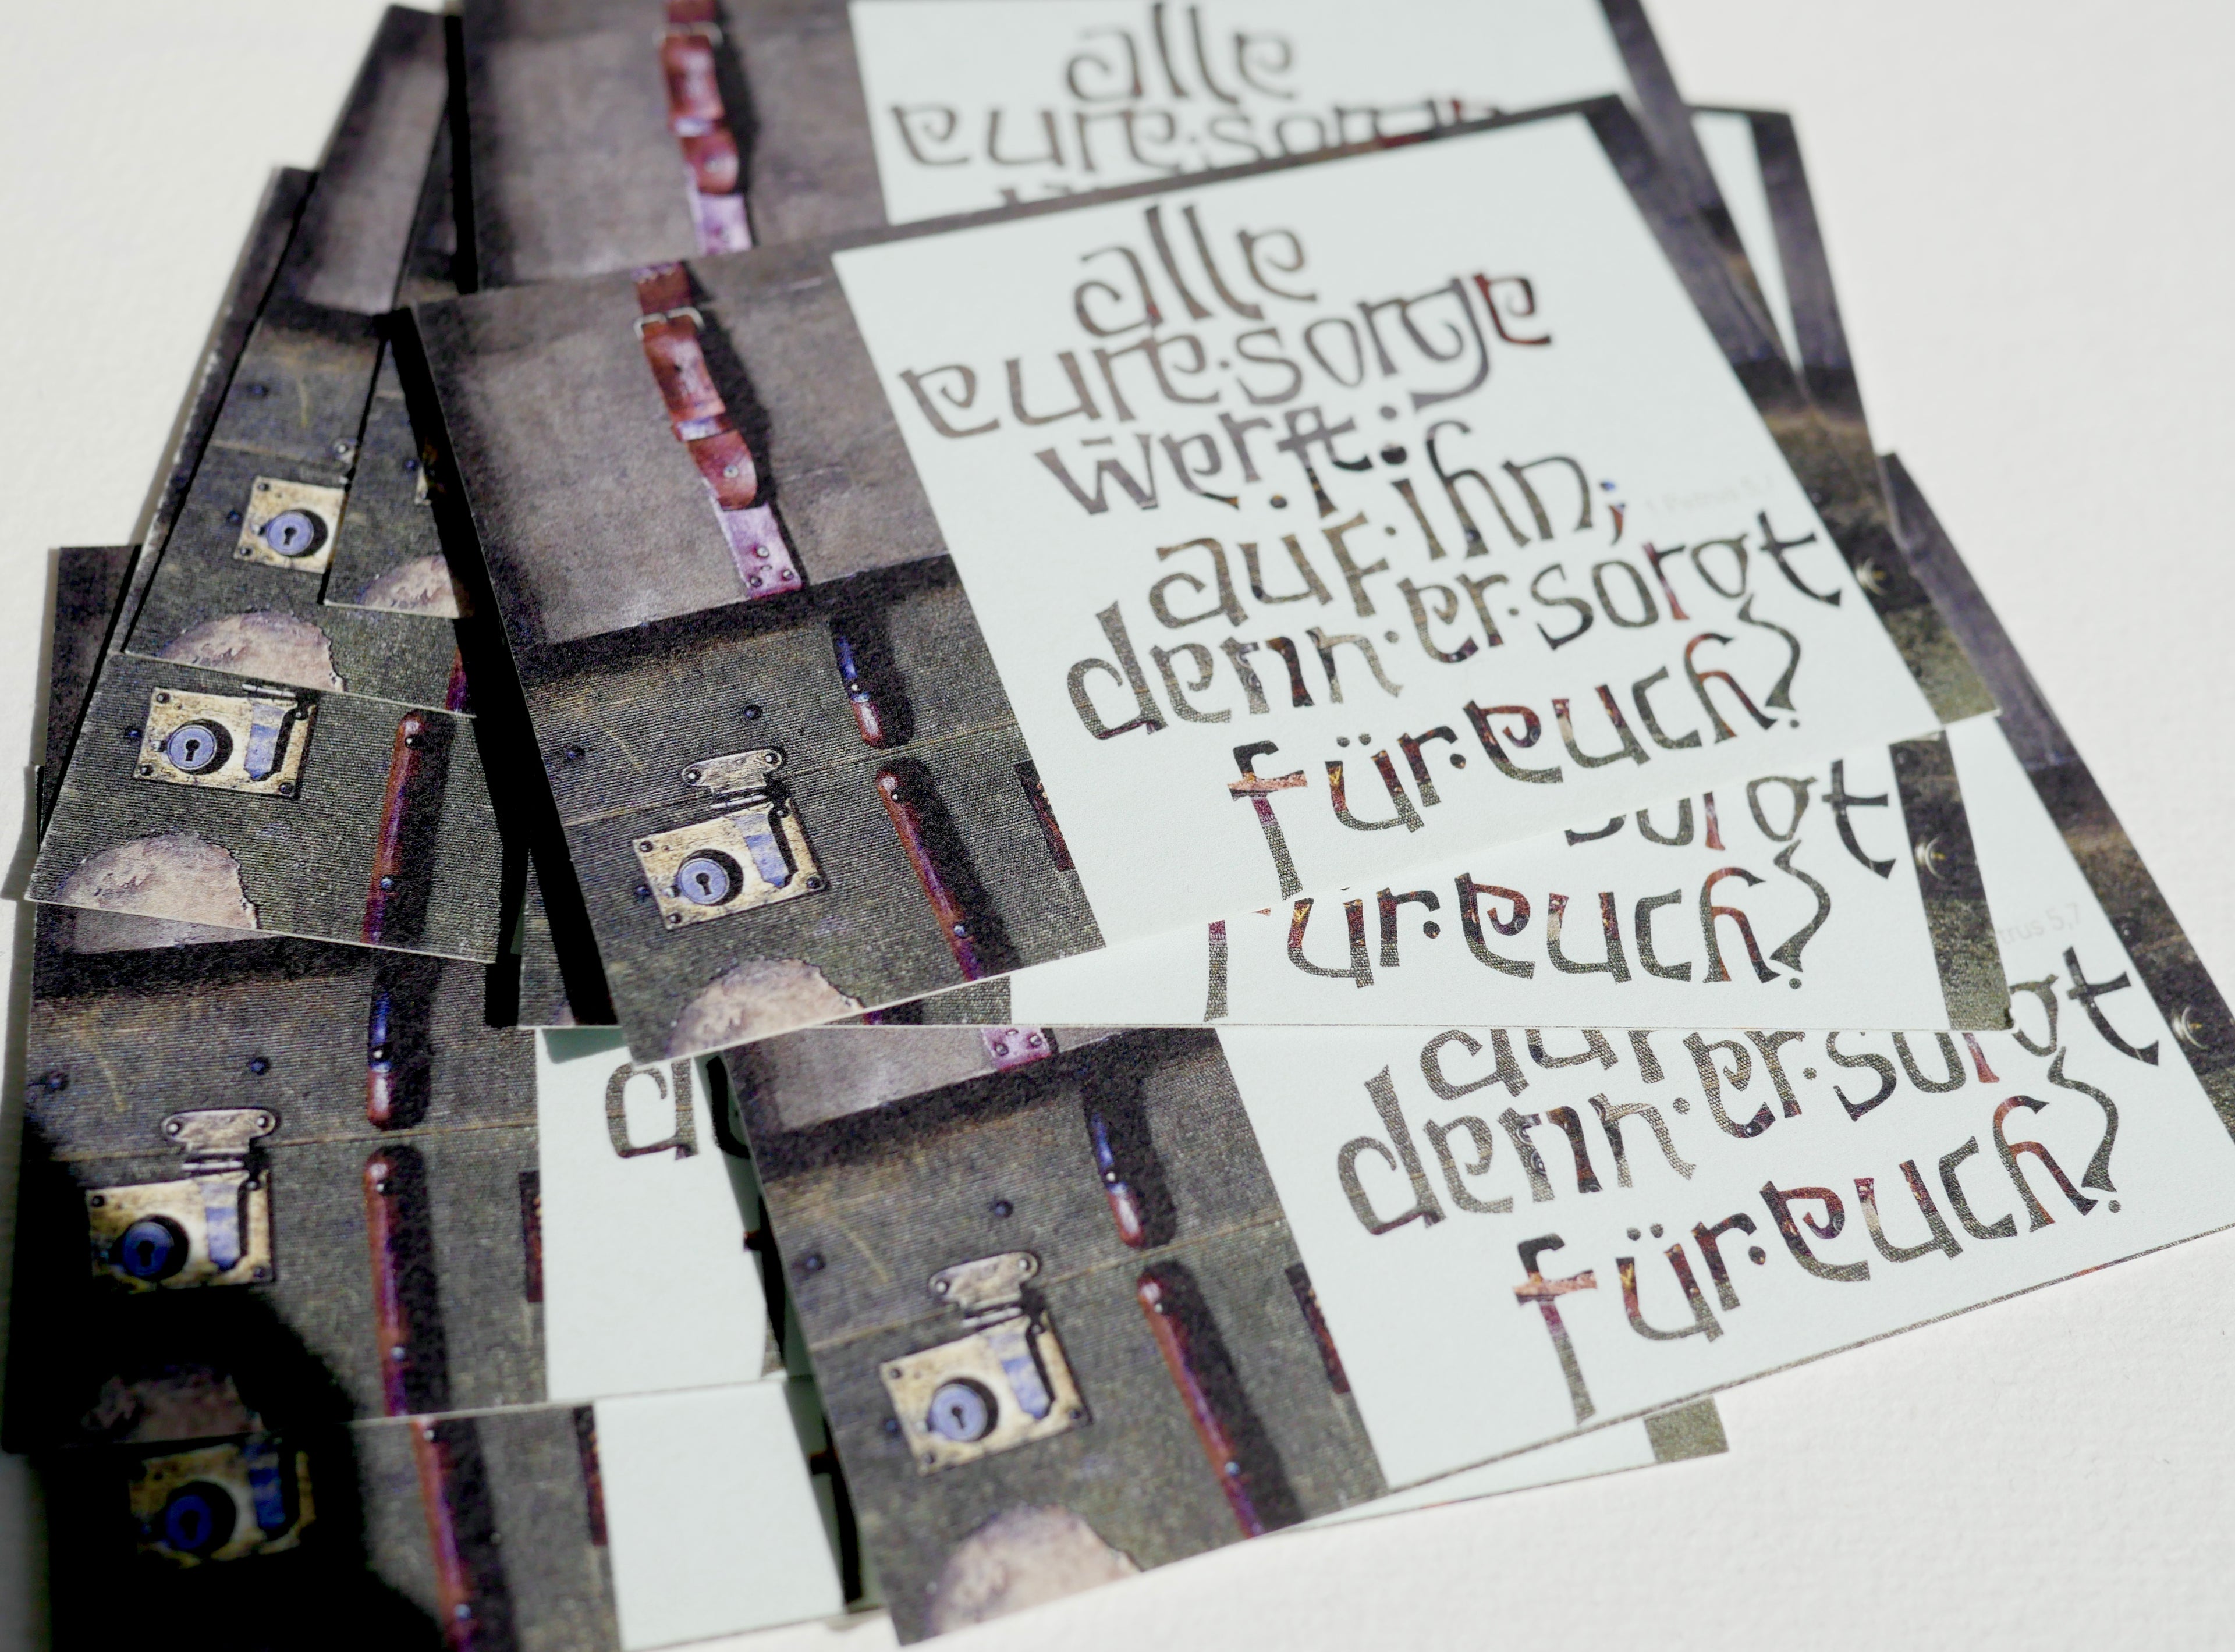 alle
eure·sorge
alle
eure·sorge
werft·
auf·ihn;
1.Petrus 5,7
denn·er·sorgt
für·euch.
sorgt
für·euch.
trus 5,7
auf
denn·er·sorgt
für·euch.